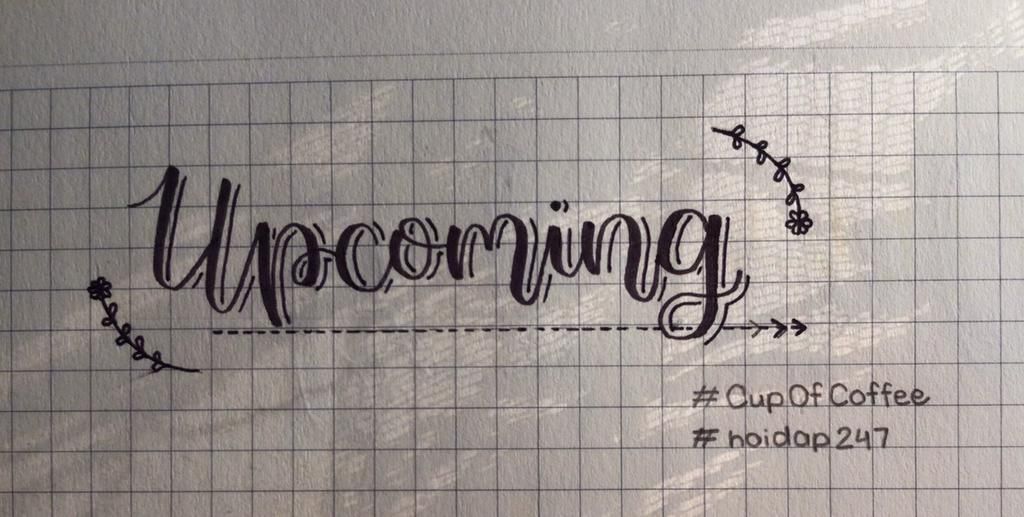 Upcoming
#CupOfCoffee
#hoidap247